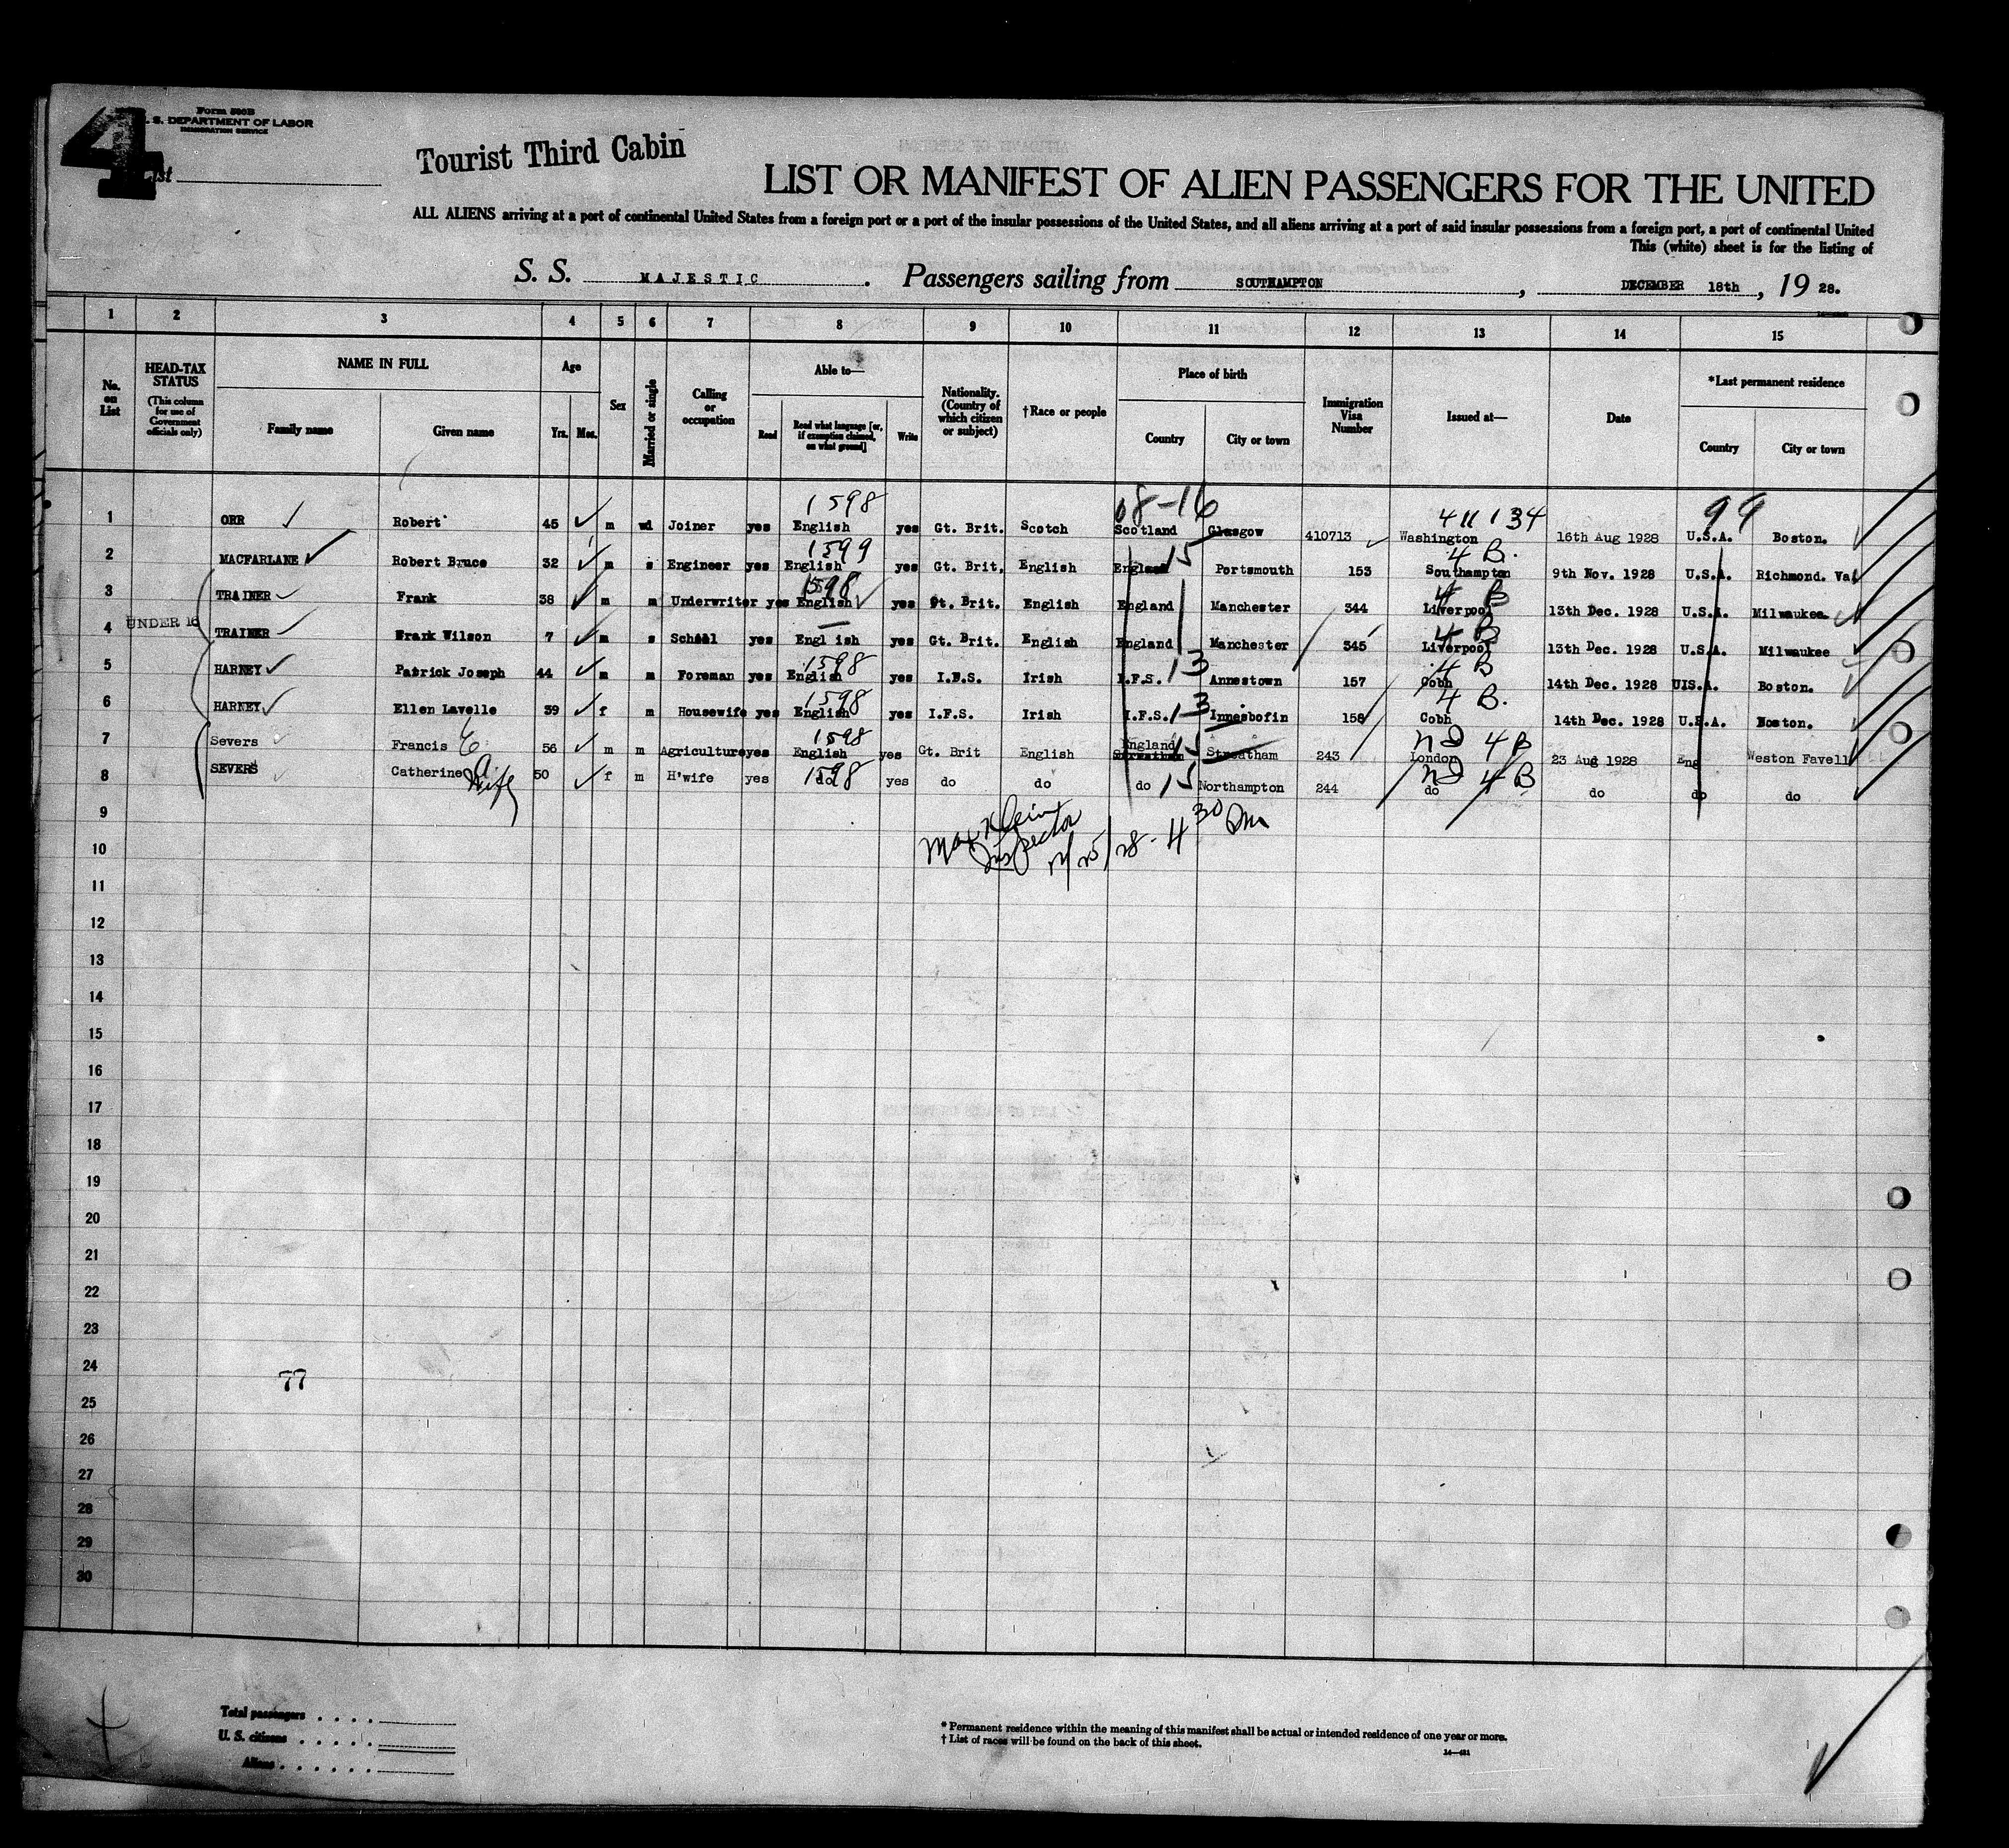 4
Form 500B
U. S. DEPARTMENT OF LABOR
IMMIGRATION SERVICE
List
Tourist Third Cabin
LIST OR MANIFEST OF ALIEN PASSENGERS FOR THE UNITED
ALL ALIENS arriving at a port of continental United States from a foreign port or a port of the insular possessions of the United States, and all aliens arriving at a port of said insular possessions from a foreign port, a port of continental United
This (white) sheet is for the listing of
S. S. MAJESTIC. Passengers sailing from SOUTHAMPTON, DECEMBER 18th, 19 28.
1 2 3 4 5 6 7 8 9 10 11 12 13 14 15
No. on List
HEAD-TAX STATUS (This column for use of Government officials only)
NAME IN FULL Family name Given name
Age Yrs. Mos.
Sex
Married or single
Calling or occupation
Able to— Read Read what language [or, if exemption claimed, on what ground] Write
Nationality. (Country of which citizen or subject)
†Race or people
Place of birth Country City or town
Immigration Visa Number
Issued at—
Date
*Last permanent residence Country City or town
1598 08-16 411134 99
1 ORR Robert 45 m wd Joiner yes English yes Gt. Brit. Scotch Scotland Glasgow 410713 Washington 16th Aug 1928 U.S.A. Boston.
1599 15 4 B.
2 MACFARLANE Robert Bruce 32 m s Engineer yes English yes Gt. Brit. English England Portsmouth 153 Southampton 9th Nov. 1928 U.S.A. Richmond. Va.
1598 4 B
3 TRAINER Frank 38 m m Underwriter yes English yes Gt. Brit. English England Manchester 344 Liverpool 13th Dec. 1928 U.S.A. Milwaukee
4 B
4 UNDER 16 TRAINER Frank Wilson 7 m s School yes English yes Gt. Brit. English England Manchester 345 Liverpool 13th Dec. 1928 U.S.A. Milwaukee
1598 13 4 B
5 HARNEY Patrick Joseph 44 m m Foreman yes English yes I.F.S. Irish I.F.S. Annestown 157 Cobh 14th Dec. 1928 UIS.A. Boston.
1598 13 4 B.
6 HARNEY Ellen Lavelle 39 f m Housewife yes English yes I.F.S. Irish I.F.S. Innesbofin 158 Cobh 14th Dec. 1928 U.S.A. Boston.
1598 15 ND 4 B
7 Severs Francis E 56 m m Agriculture yes English yes Gt. Brit English England Streatham 243 London 23 Aug 1928 Eng Weston Favell
1598 15 ND 4 B
8 SEVERS Catherine A Wife 50 f m H'wife yes do yes do do do Northampton 244 do do do do
9
Max Klein
Inspector
12/25/28 - 4 30 Pm
10
11
12
13
14
15
16
17
18
19
20
21
22
23
24
77
25
26
27
28
29
30
Total passengers
U. S. citizens
Aliens
* Permanent residence within the meaning of this manifest shall be actual or intended residence of one year or more.
† List of races will be found on the back of this sheet.
14—421